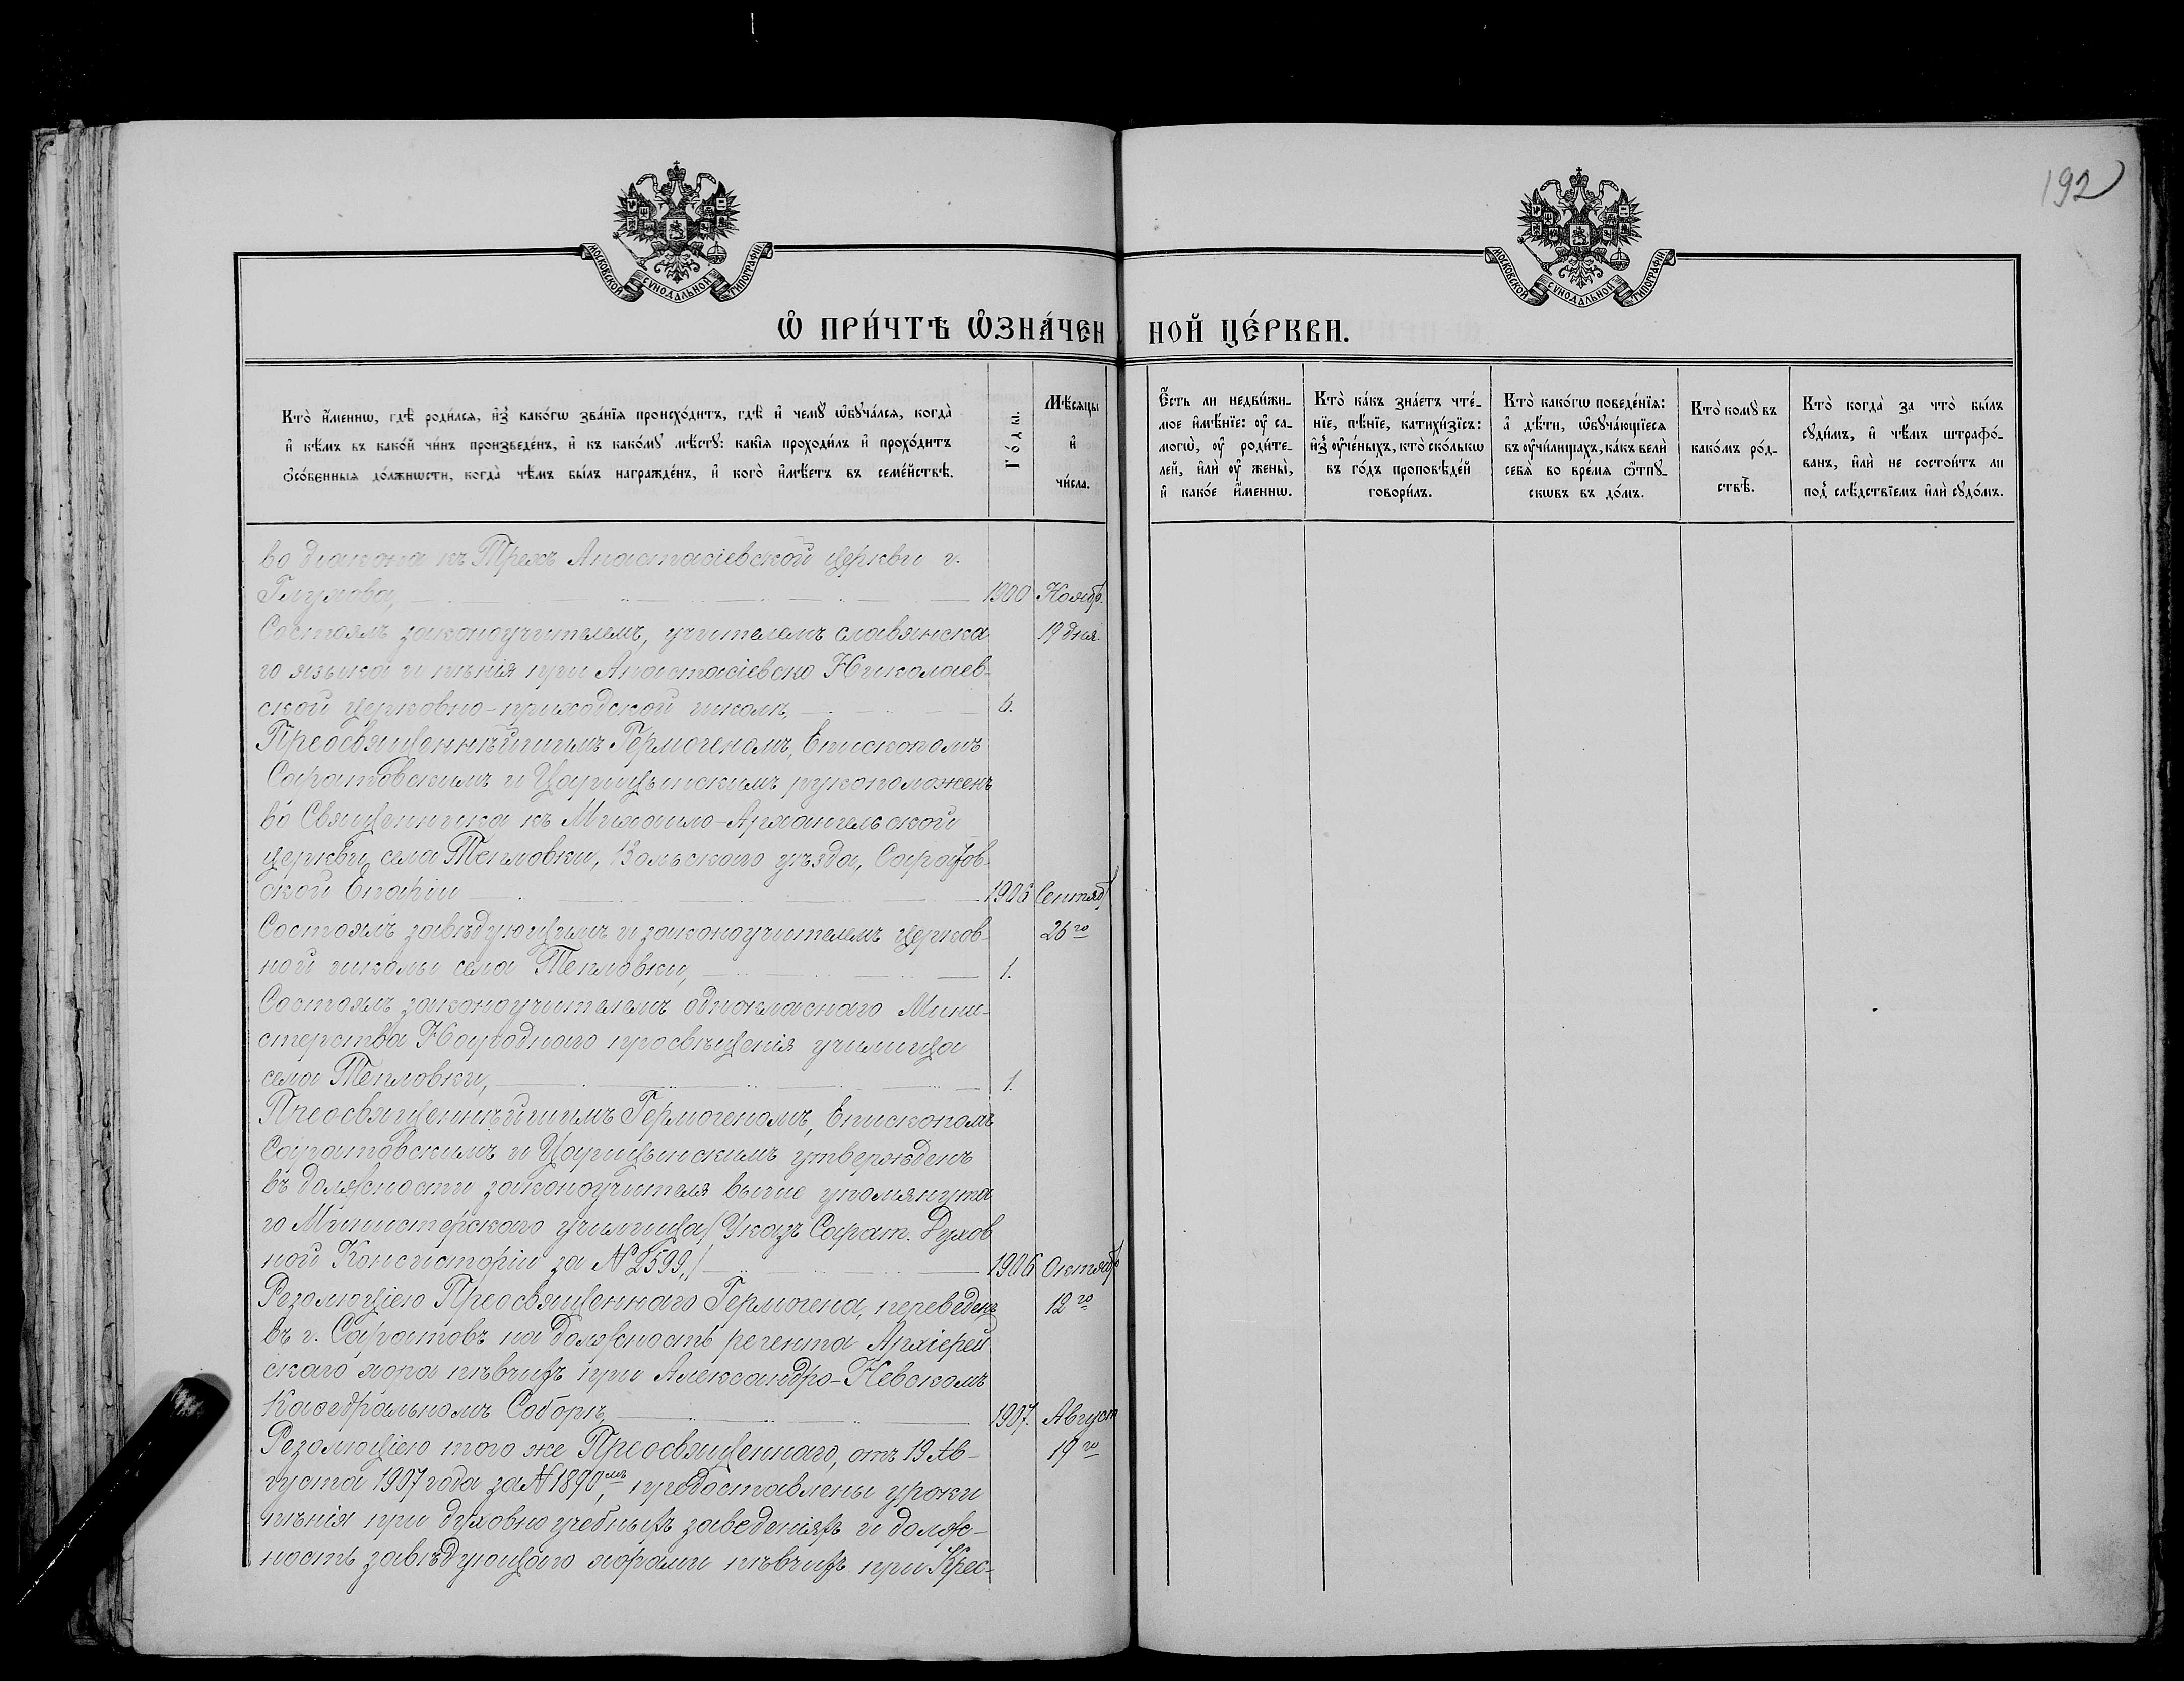 192
МОСКОВСКОЙ СѴНОДАЛЬНОЙ ТИПОГРАФІИ
МОСКОВСКОЙ СѴНОДАЛЬНОЙ ТИПОГРАФІИ
Ѡ ПРИ́ЧТѢ ѠЗНА́ЧЕННОЙ ЦЕ́РКВИ.
Кто̀ и҆́менно, гдѣ̀ роди́лсѧ, и҆з̾ како́гѡ зва́нїѧ происхо́дитъ, гдѣ̀ и҆ чемꙋ̀ ѡ҆бꙋча́лсѧ, когда̀
и҆ кѣ́мъ въ како́й чи́нъ произведе́нъ, и҆ къ како́мꙋ мѣ́стꙋ: какі̑ѧ проходи́лъ и҆ прохо́дитъ
ѻ҆со́бєнныѧ до́лжнѡсти, когда̀ чѣ́мъ бы́лъ награжде́нъ, и҆ кого̀ и҆мѣ́етъ въ семе́йствѣ.
Го́ды.
Мѣ́сѧцы
и҆
чи́сла.
Є҆́сть ли недви́жи-
мое и҆мѣ́нїе: оу҆ са-
могѡ̀, оу҆ роди́те-
лей, и҆лѝ оу҆ жены̀,
и҆ како́е и҆́менно.
Кто̀ ка́къ зна́етъ чте́-
нїе, пѣ́нїе, катихи́зїсъ:
и҆з̾ оу҆че́ныхъ, кто̀ ско́лькѡ
въ го́дъ проповѣ́дей
говори́лъ.
Кто̀ како́гѡ поведе́нїѧ:
а҆ дѣ́ти, ѡ҆бꙋча́ющїесѧ
въ оу҆чи́лищахъ, ка́къ велѝ
себѧ̀ во вре́мѧ ѿпꙋ-
скѡвъ въ до́мъ.
Кто̀ комꙋ̀ въ
како́мъ ро́д-
ствѣ̀.
Кто̀ когда̀ за что̀ бы́лъ
сꙋди́мъ, и҆ чѣ́мъ штрафо́-
ванъ, и҆лѝ не состои́тъ ли
под̾ слѣ́дствїемъ и҆лѝ сꙋдо́мъ.
во диакона къ Трехъ Анастасіевской церкви г.
Глухова, 1900 Ноябр.
Состоялъ законоучителемъ, учителемъ славянска 19 дня.
го языка и пѣнія при Анастасіевско Николаев-
ской церковно-приходской школѣ, 6.
Преосвященнѣйшимъ Гермогеномъ, Епископомъ
Саратовскимъ и Царицынскимъ рукоположенъ
во Священника къ Михаило-Архангельской
церкви села Тепловки, Вольскаго уѣзда, Саратов-
ской Епархіи 1906 Сентяб
Состоялъ завѣдующимъ и законоучителемъ церков- 26го
ной школы села Тепловки, 1.
Состоялъ законоучителемъ однокласнаго Мини-
стерства Народнаго просвѣщенія училища
села Тепловки, 1.
Преосвященнѣйшимъ Гермогеномъ, Епископомъ
Саратовскимъ и Царицынскимъ утвержденъ
въ должности законоучителя выше упомянута
го Министерскаго училища/Указъ Сарат. Духов
ной Консисторіи за № 2599,/ 1906 Октябр
Резолюціею Преосвященнаго Гермогена, переведенъ 12го
въ г. Саратовъ на должность регента Архіерей
скаго хора пѣвчихъ при Александро-Невскомъ
Каѳедральномъ Соборѣ, 1907. Август
Резолюціею того же Преосвященнаго, отъ 19 Ав- 19го
густа 1907 года за № 1890мъ, предоставлены уроки
пѣнія при духовно учебныхъ заведеніяхъ и долж-
ность завѣдующаго хорами пѣвчихъ при Крес-